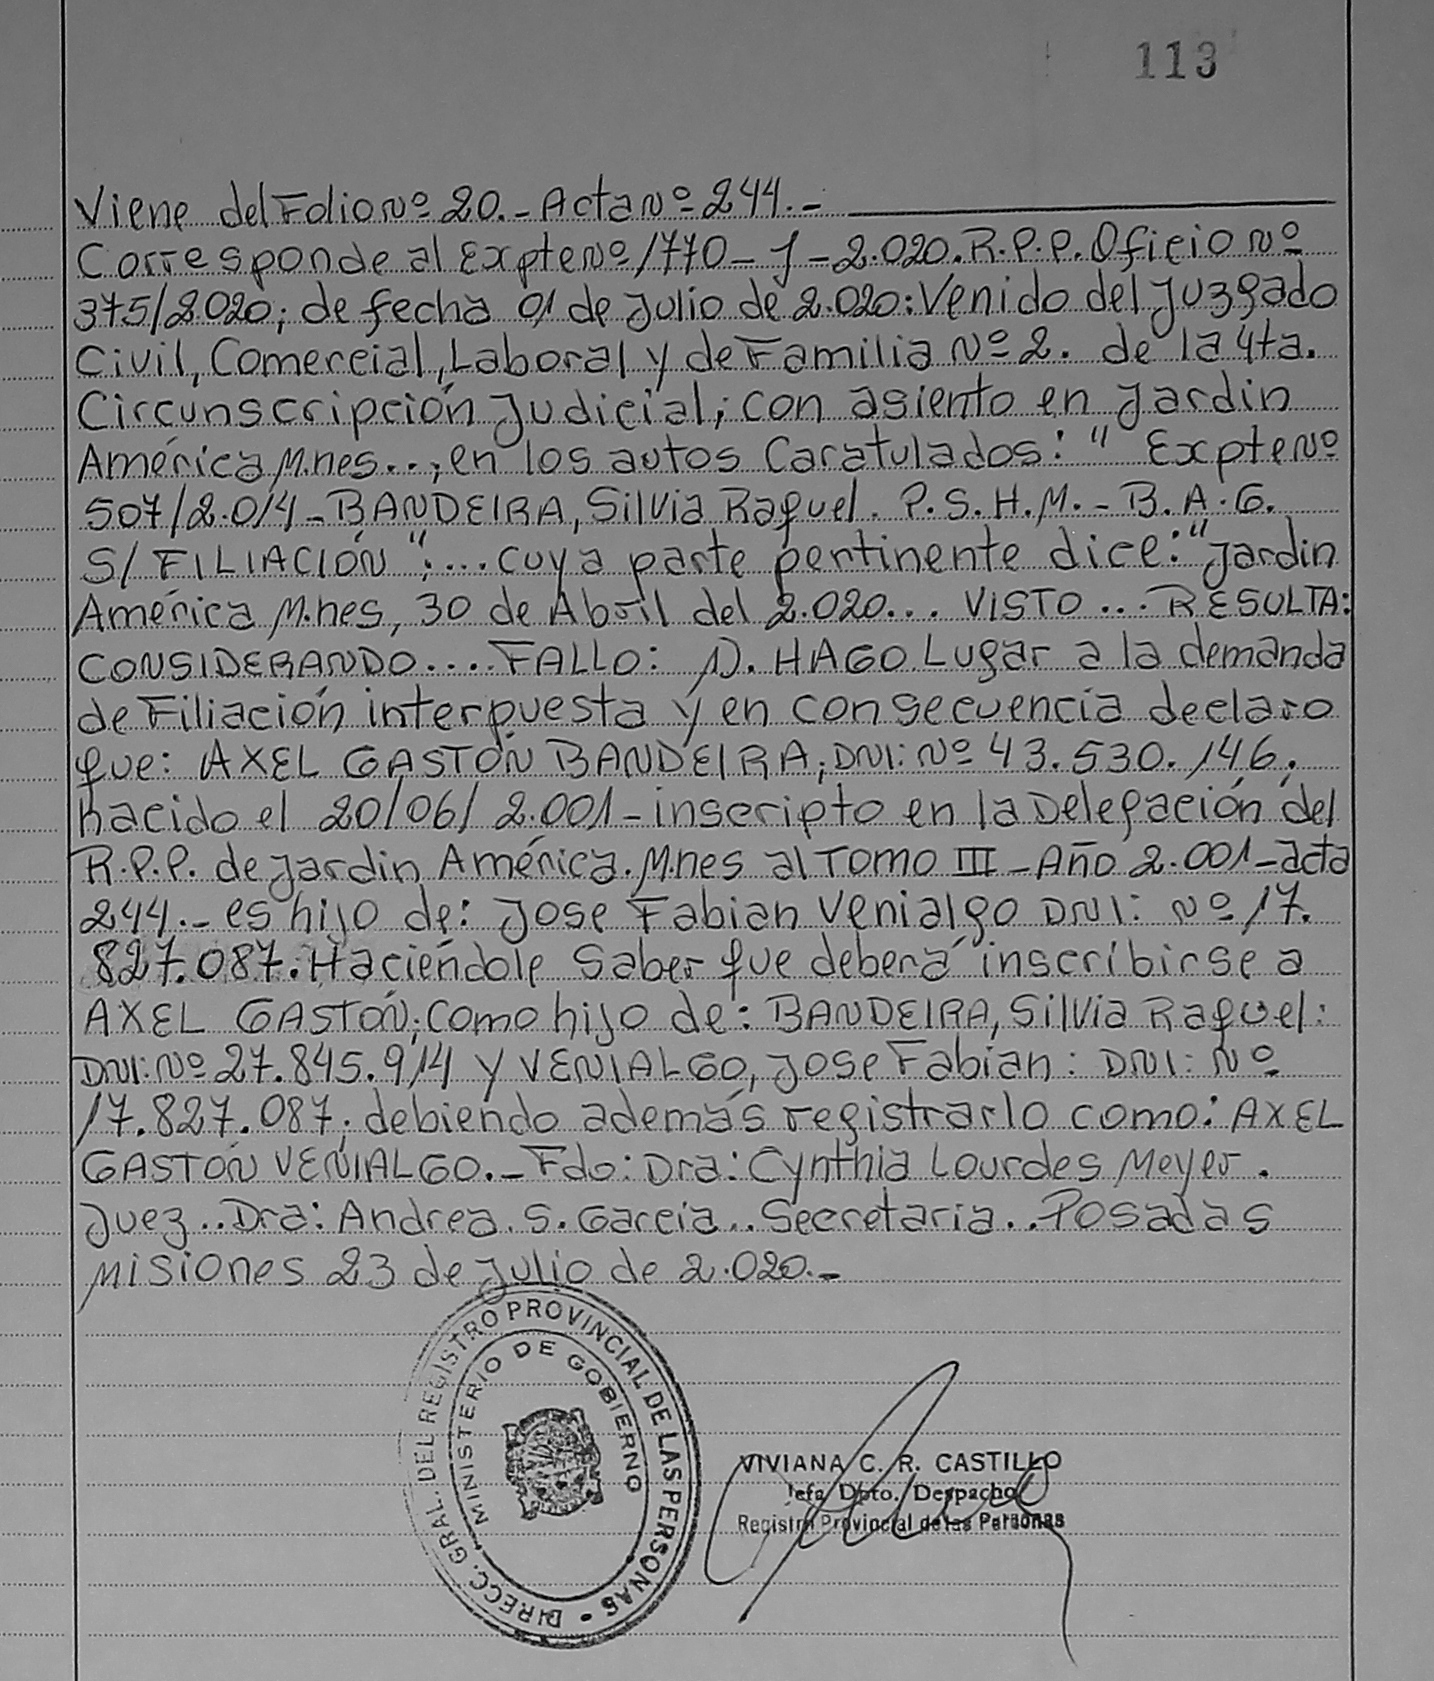 113
Viene del Folio Nº 20.- Acta Nº 244.-
Corresponde al Expte Nº 1770-J-2.020. R.P.P. Oficio Nº
375/2020; de fecha 01 de Julio de 2.020: Venido del Juzgado
Civil, Comercial, Laboral y de Familia Nº 2. de la 4ta.
Circunscripción Judicial; con asiento en Jardin
América M.nes..; en los autos Caratulados: " Expte Nº
507/2.014 - BANDEIRA, Silvia Raquel. P.S.H.M. - B.A.G.
S/ FILIACIÓN "; ... cuya parte pertinente dice: "Jardin
América M.nes, 30 de Abril del 2.020... VISTO ... RESULTA:
CONSIDERANDO.... FALLO: 1). HAGO Lugar a la demanda
de Filiación interpuesta y en consecuencia declaro
que: AXEL GASTÓN BANDEIRA; DNI: Nº 43.530.146,
nacido el 20/06/2.001 - inscripto en la Delegación del
R.P.P. de Jardin América. M.nes al Tomo III - Año 2.001 - acta
244.- es hijo de: Jose Fabian Venialgo DNI: Nº 17.
827.087. Haciéndole Saber que deberá inscribirse a
AXEL GASTÓN; como hijo de: BANDEIRA, Silvia Raquel:
DNI: Nº 27.845.914 y VENIALGO, Jose Fabian: DNI: Nº
17.827.087; debiendo además registrarlo como: AXEL
GASTÓN VENIALGO.- Fdo: Dra: Cynthia Lourdes Meyer.
Juez.. Dra: Andrea. S. Garcia.. Secretaria.. Posadas
Misiones 23 de Julio de 2.020.-
DIRECC. GRAL. DEL REGISTRO PROVINCIAL DE LAS PERSONAS -
MINISTERIO DE GOBIERNO
VIVIANA C. R. CASTILLO
Jefa Dpto. Despacho
Registro Provincial de las Personas